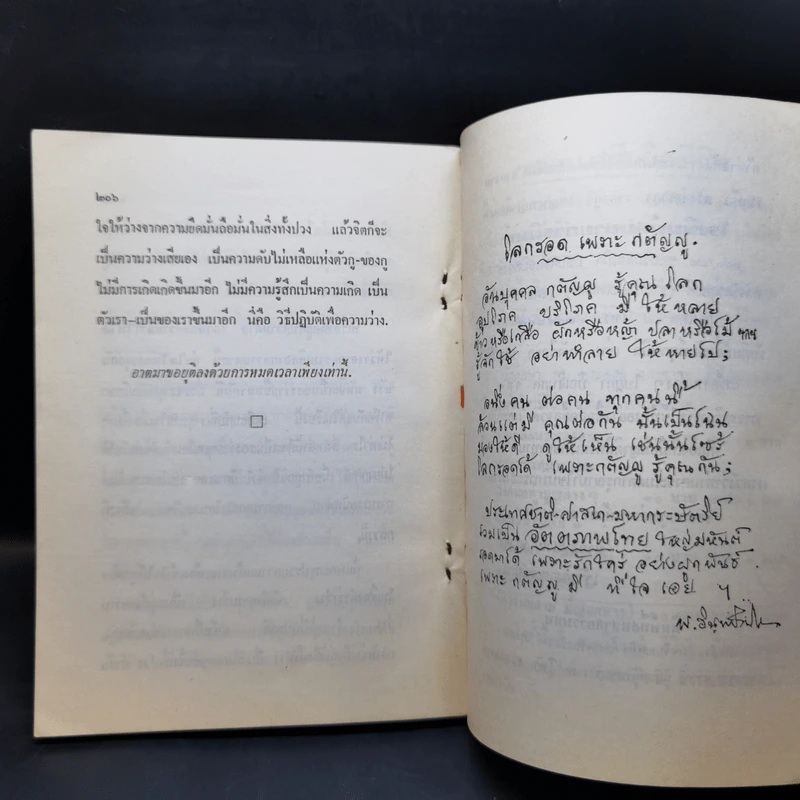 ๒๐๖
ใจให้ว่างจากความยึดมั่นถือมั่นในสิ่งทั้งปวง แล้วจิตก็จะ
เป็นความว่างเสียเอง เป็นความดับไม่เหลือแห่งตัวกู-ของกู
ไม่มีการเกิดเกิดขึ้นมาอีก ไม่มีความรู้สึกเป็นความเกิด เป็น
ตัวเรา—เป็นของเราขึ้นมาอีก นี่คือ วิธีปฏิบัติเพื่อความว่าง.
อาตมาขอยุติลงด้วยการหมดเวลาเพียงเท่านี้.
โลกรอด เพราะ กตัญญู.
อันบุคคล กตัญญู รู้คุณ โลก
อุปโภค บริโภค มี ให้ หลาย
ข้าว หรือเกลือ ผักหรือหญ้า ปลาหรือไม้
รู้จักใช้ อย่าทำลาย ให้หายไป;
อนึ่ง คน ต่อคน ทุกคนนี้
ล้วนแต่มี คุณต่อกัน นั้นเป็นไฉน
มองให้ดี ดูให้เห็น เช่นนั้นไซร้
โลกรอดได้ เพราะกตัญญู รู้คุณกัน;
ประเทศชาติ-ศาสนา-มหากระษัตริย์
รวมเป็น อัตตภาพไทย ใหญ่มหันต์
รอดมาได้ เพราะรักใคร่ อย่างผูกพันธ์
เพราะ กตัญญู มี ที่ใจ เอย ฯ